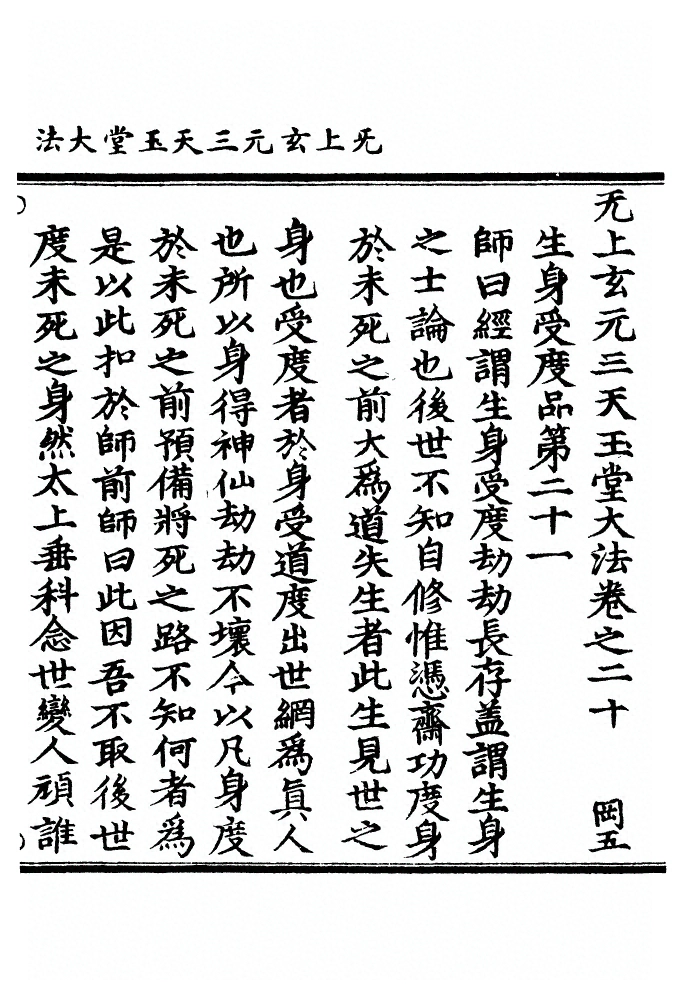 无上玄元三天玉堂大法
无上玄元三天玉堂大法卷之二十 岡五
生身受度品第二十一
師曰經謂生身受度劫劫長存蓋謂生身
之士論也後世不知自修惟憑齋功度身
於未死之前大爲道失生者此生見世之
身也受度者於身受道度出世網爲眞人
也所以身得神仙劫劫不壞今以凡身度
於未死之前預備將死之路不知何者爲
是以此扣於師前師曰此因吾不取後世
度未死之身然太上垂科念世變人頑誰